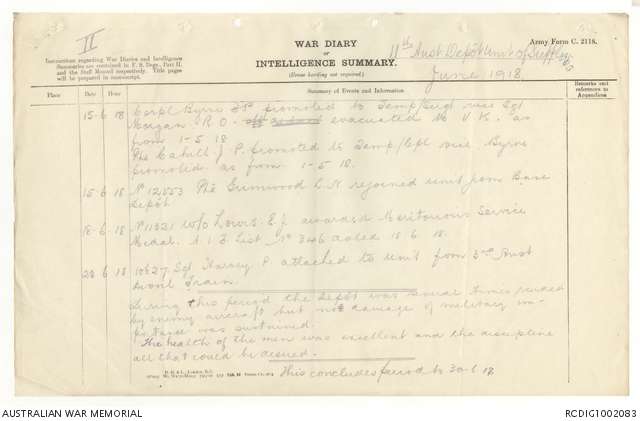 II
WAR DIARY
OR
INTELLIGENCE SUMMARY.
(Erase heading not required.)
Army Form C. 2118.
Instructions regarding War Diaries and Intelligence
Summaries are contained in F. S. Regs., Part II.
and the Staff Manual respectively. Title pages
will be prepared in manuscript.
11th Aust Depôt Unit of Supply
June 1918
Place
Date
Hour
Summary of Events and Information
Remarks and
references to
Appendices
15-6 18 Corpl Byrne promoted to Temp/Sergt vice Sgt
Morgan R.O. evacuated to U.K. as
from 1-5 18.
Pte Cahill J P. promoted to Temp/Cpl vice Byrne
promoted as from 1-5 18.
15-6 18 No 12553 Pte Grimwood L.N rejoined unit from Base
Depôt
18-6 18 No 11321 W/O Lewis. E.J awarded Meritorious Service
Medal. A I F List No 346 dated 18 6 18.
20 6 18 10827 Sgt Harvey P attached to unit from 3rd Aust
Divnl Train.
During this period the depôt was several times raided
by enemy aircraft but not damage of military im-
portance was sustained.
The health of the men was excellent and the discipline
all that could be desired.
This concludes period to 30-6-18
AUSTRALIAN WAR MEMORIAL
RCDIG1002083